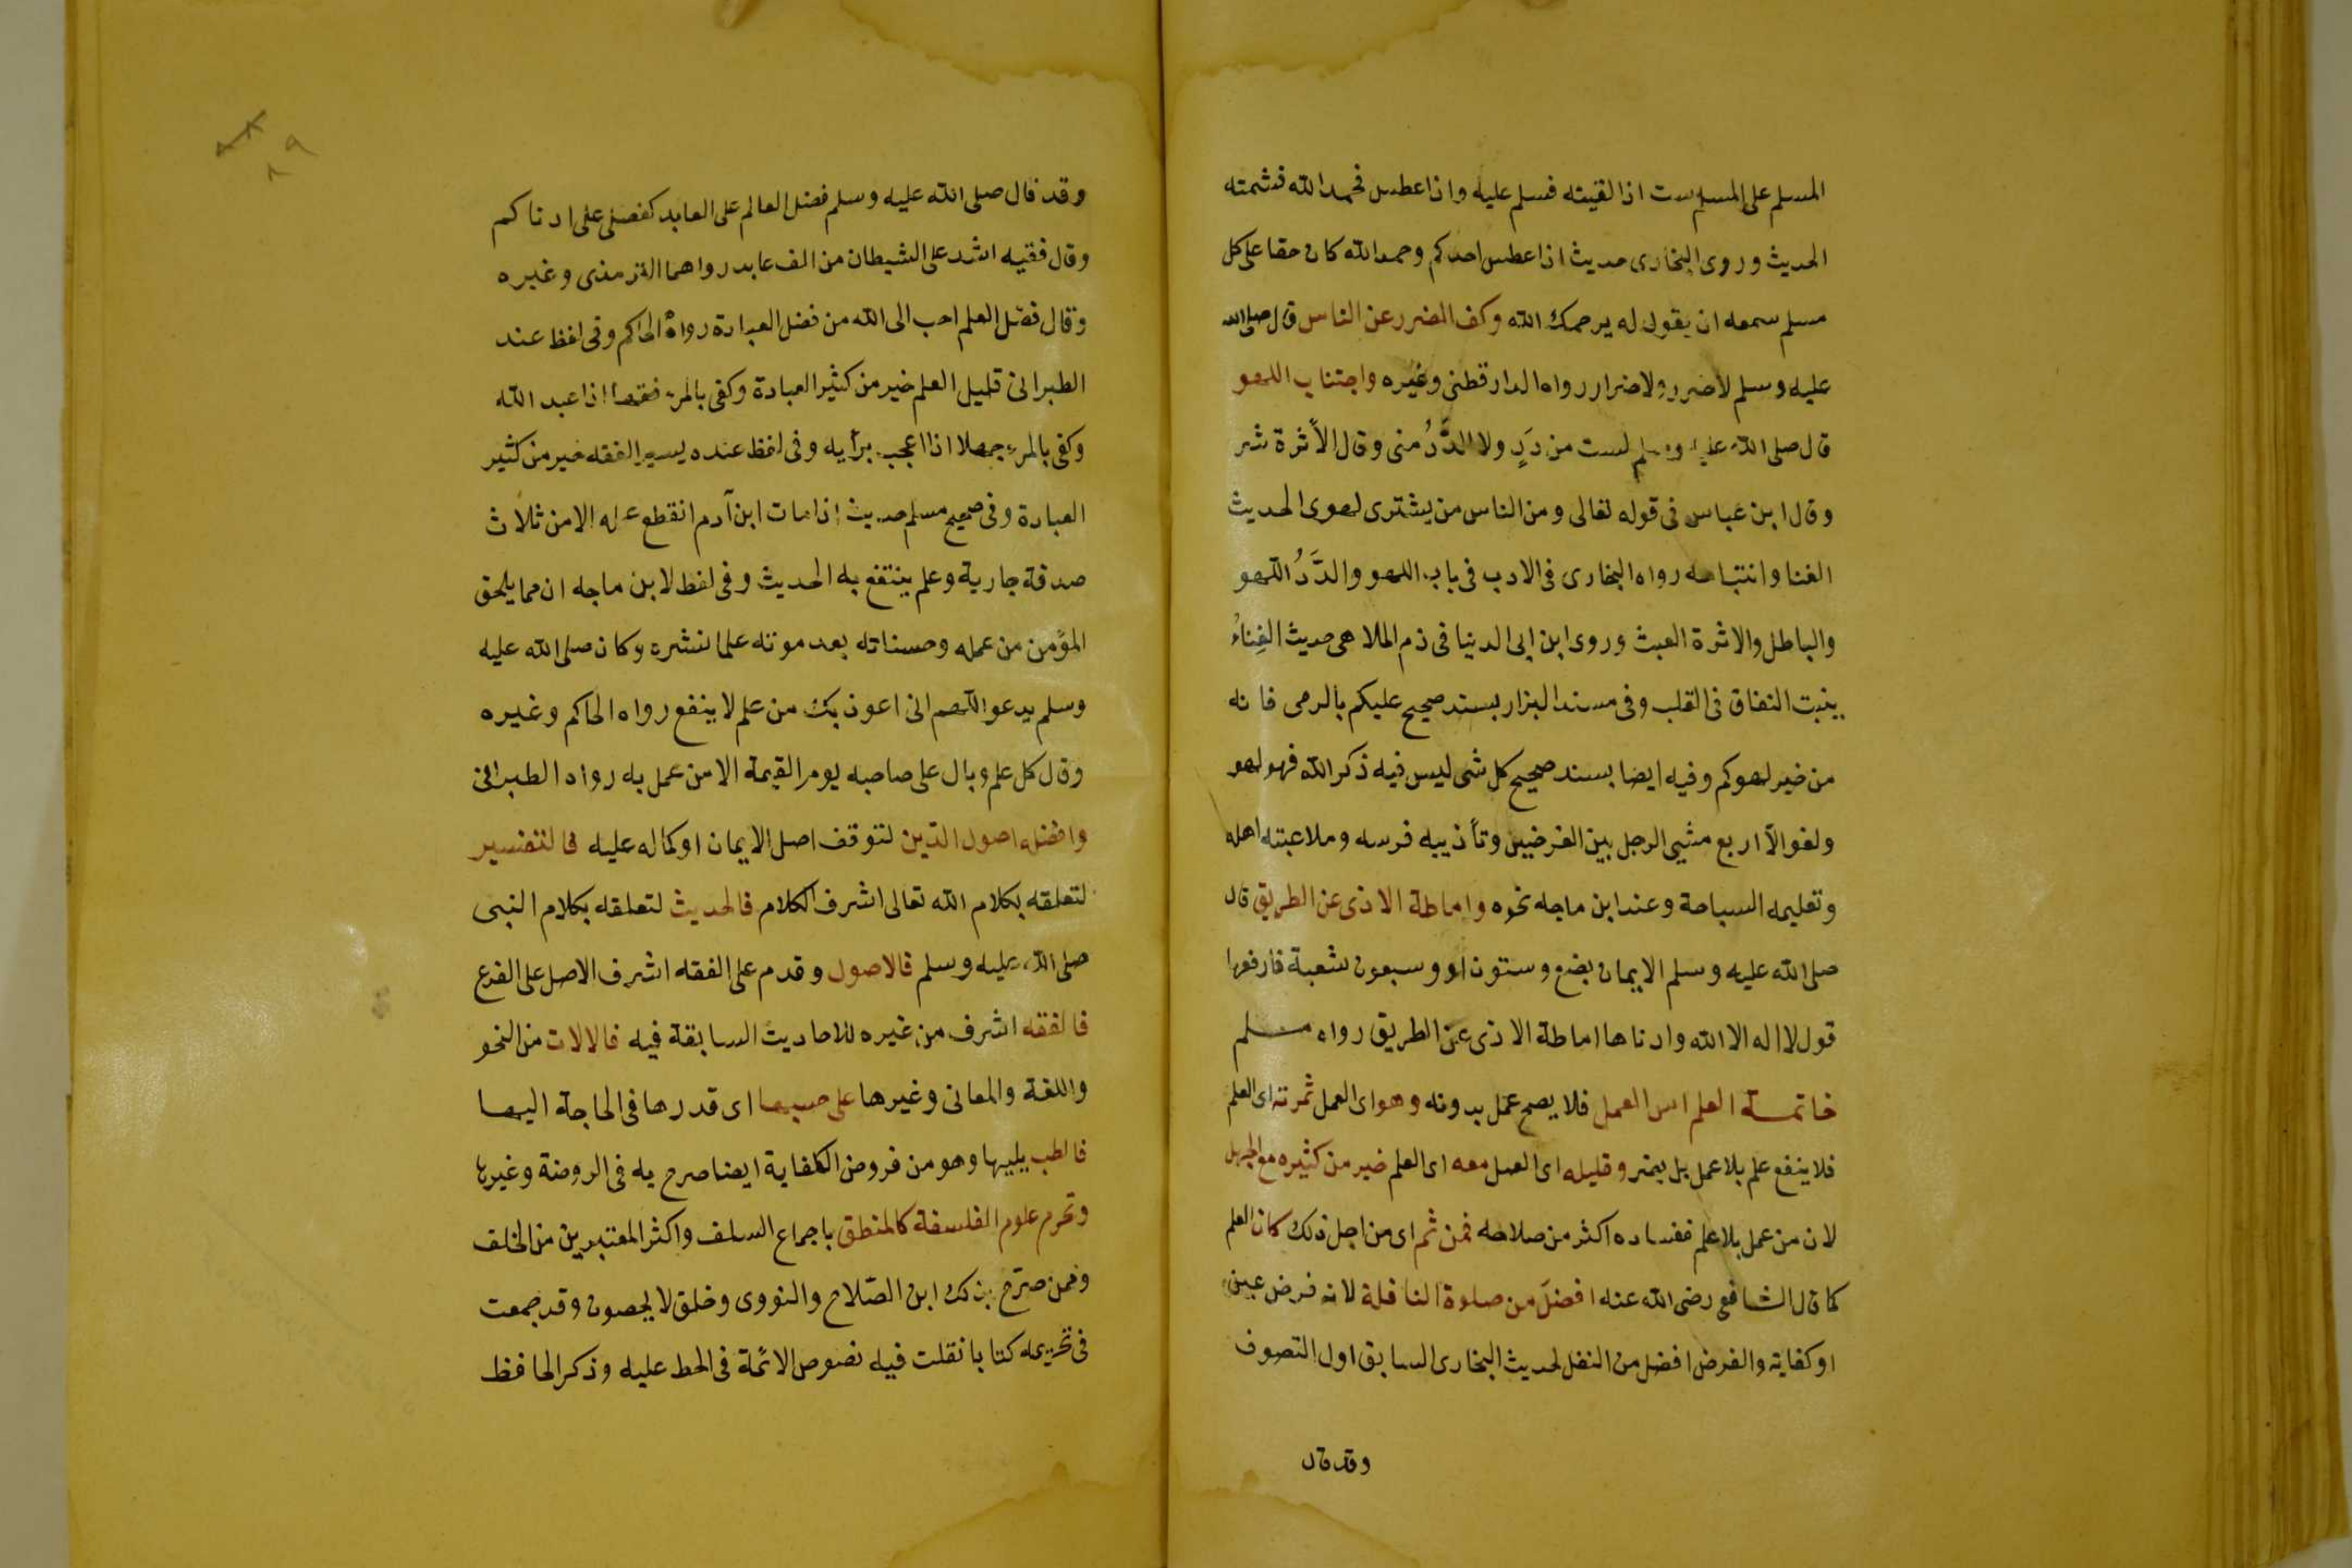 المسلم على المسلم ست اذا لقيته فسلم عليه واذا عطس فحمد الله فشمته
الحديث وروى البخارى حديث اذا عطس احدكم وحمد الله كان حقا على كل
مسلم سمعه ان يقول له يرحمك الله وكف الضرر عن الناس قال صلى الله
عليه وسلم لا ضرر ولا ضرار رواه الدارقطنى وغيره واجتناب اللهو
قال صلى الله عليه وسلم لست من دَدٍ ولا الدَّدُ منى وقال الأثرة شر
وقال ابن عباس فى قوله تعالى ومن الناس من يشترى لهوى الحديث
الغنا واشباهه رواه البخارى فى الادب فى باب اللهو والدَّدُ اللهو
والباطل والاثرة العبث وروى ابن ابى الدنيا فى ذم الملاهى حديث الغِناءُ
ينبت النفاق فى القلب وفى مسند البزار بسند صحيح عليكم بالرمى فانه
من خير لهوكم وفيه ايضا بسند صحيح كل شى ليس فيه ذكر الله فهو لهو
ولغو الا اربع مشيى الرجل بين الغرضين وتأذيبه فرسه وملاعبته اهله
وتعليمه السباحة وعند ابن ماجه نحوه واماطة الاذى عن الطريق قال
صلى الله عليه وسلم الايمان بضع وستون او وسبعون شعبة فارفعها
قول لا اله الا الله وادناها اماطة الاذى عن الطريق رواه مسلم
خاتمة العلم اس العمل فلا يصح عمل بدونه وهو اى العمل ثمرته اى العلم
فلا ينفع علم بلا عمل بل يضر وقليله اى العمل معه اى العلم خير من كثيره مع الجهل
لان من عمل بلا علم ففساده اكثر من صلاحه فمن ثم اى من اجل ذلك كان العلم
كما قال الشافعى رضى الله عنه افضلَ من صلوة النافلة لانه فرض عين
او كفاية والفرض افضل من النفل لحديث البخارى السابق اول التصوف
وقد قال
٨٩
وقد قال صلى الله عليه وسلم فضل العالم على العابد كفضلى على ادناكم
وقال فقيه اشد على الشيطان من الف عابد رواهما الترمذى وغيره
وقال فضل العلم احب الى الله من فضل العبادة رواه الحاكم وفى لفظ عند
الطبرانى قليل العلم خير من كثير العبادة وكفى بالمرء فقها اذا عبد الله
وكفى بالمرء جهلا اذا اعجب برأيه وفى لفظ عنده يسير الفقه خير من كثير
العبادة وفى صحيح مسلم حديث اذا مات ابن آدم انقطع عمله الا من ثلاث
صدقة جارية وعلم ينتفع به الحديث وفى لفظ لابن ماجه ان مما يلحق
المؤمن من عمله وحسناته بعد موته علما نشره وكان صلى الله عليه
وسلم يدعو اللهم انى اعوذ بك من علم لا ينفع رواه الحاكم وغيره
وقال كل علم وبال على صاحبه يوم القيمة الا من عمل به رواه الطبرانى
وافضله اصول الدّين لتوقف اصل الايمان او كماله عليه فالتفسير
لتعلقه بكلام الله تعالى اشرف الكلام فالحديث لتعلقه بكلام النبى
صلى الله عليه وسلم فالاصول وقدم على الفقه اشرف الاصل على الفرع
فالفقه اشرف من غيره للاحاديث السابقة فيه فالالات من النحو
واللغة والمعانى وغيرها على حسبها اى قدرها فى الحاجة اليها
فالطب يليها وهو من فروض الكفاية ايضا صرح به فى الروضة وغيرها
وتحرم علوم الفلسفة كالمنطق باجماع السلف واكثر المعتبرين من الخلف
وممن صرّح بذلك ابن الصّلاح والنووى وخلق لا يحصون وقد جمعت
فى تحريمه كتابا نقلت فيه نصوص الائمة فى الحط عليه وذكر الحافظ